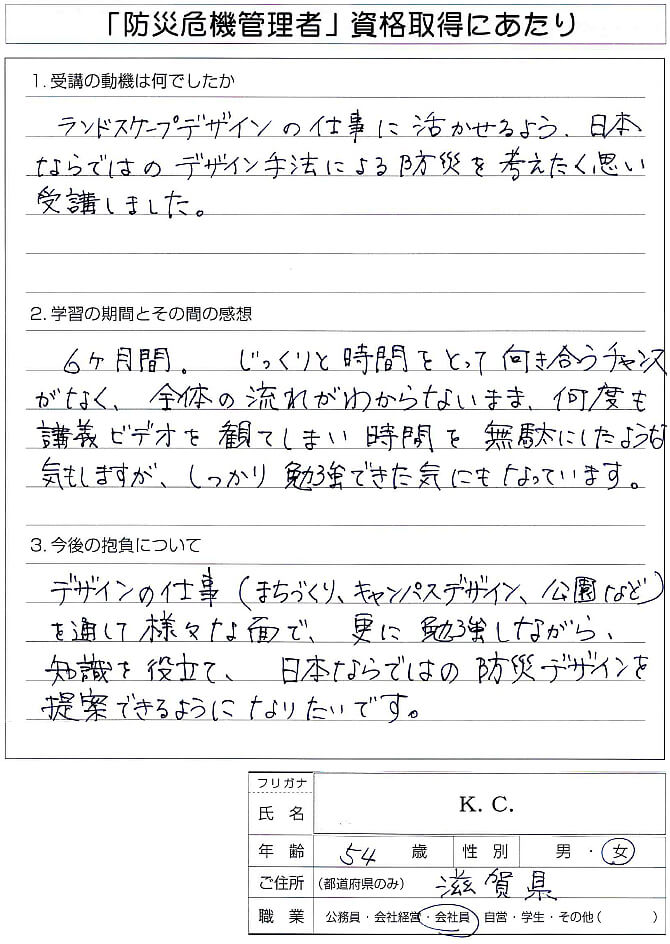 「防災危機管理者」資格取得にあたり
1. 受講の動機は何でしたか
ランドスケープデザインの仕事に活かせるよう、日本
ならではのデザイン手法による防災を考えたく思い
受講しました。
2. 学習の期間とその間の感想
6ヶ月間。 じっくりと時間をとって向き合うチャンス
がなく、全体の流れがわからないまま、何度も
講義ビデオを観てしまい時間を無駄にしたような
気もしますが、しっかり勉強できた気にもなっています。
3. 今後の抱負について
デザインの仕事(まちづくり、キャンパスデザイン、公園など)
を通して様々な面で、更に勉強しながら、
知識を役立て、日本ならではの防災デザインを
提案できるようになりたいです。
フリガナ
氏名 K. C.
年齢 54 歳 性別 男・女
ご住所 (都道府県のみ) 滋賀県
職業 公務員・会社経営・会社員・自営・学生・その他( )